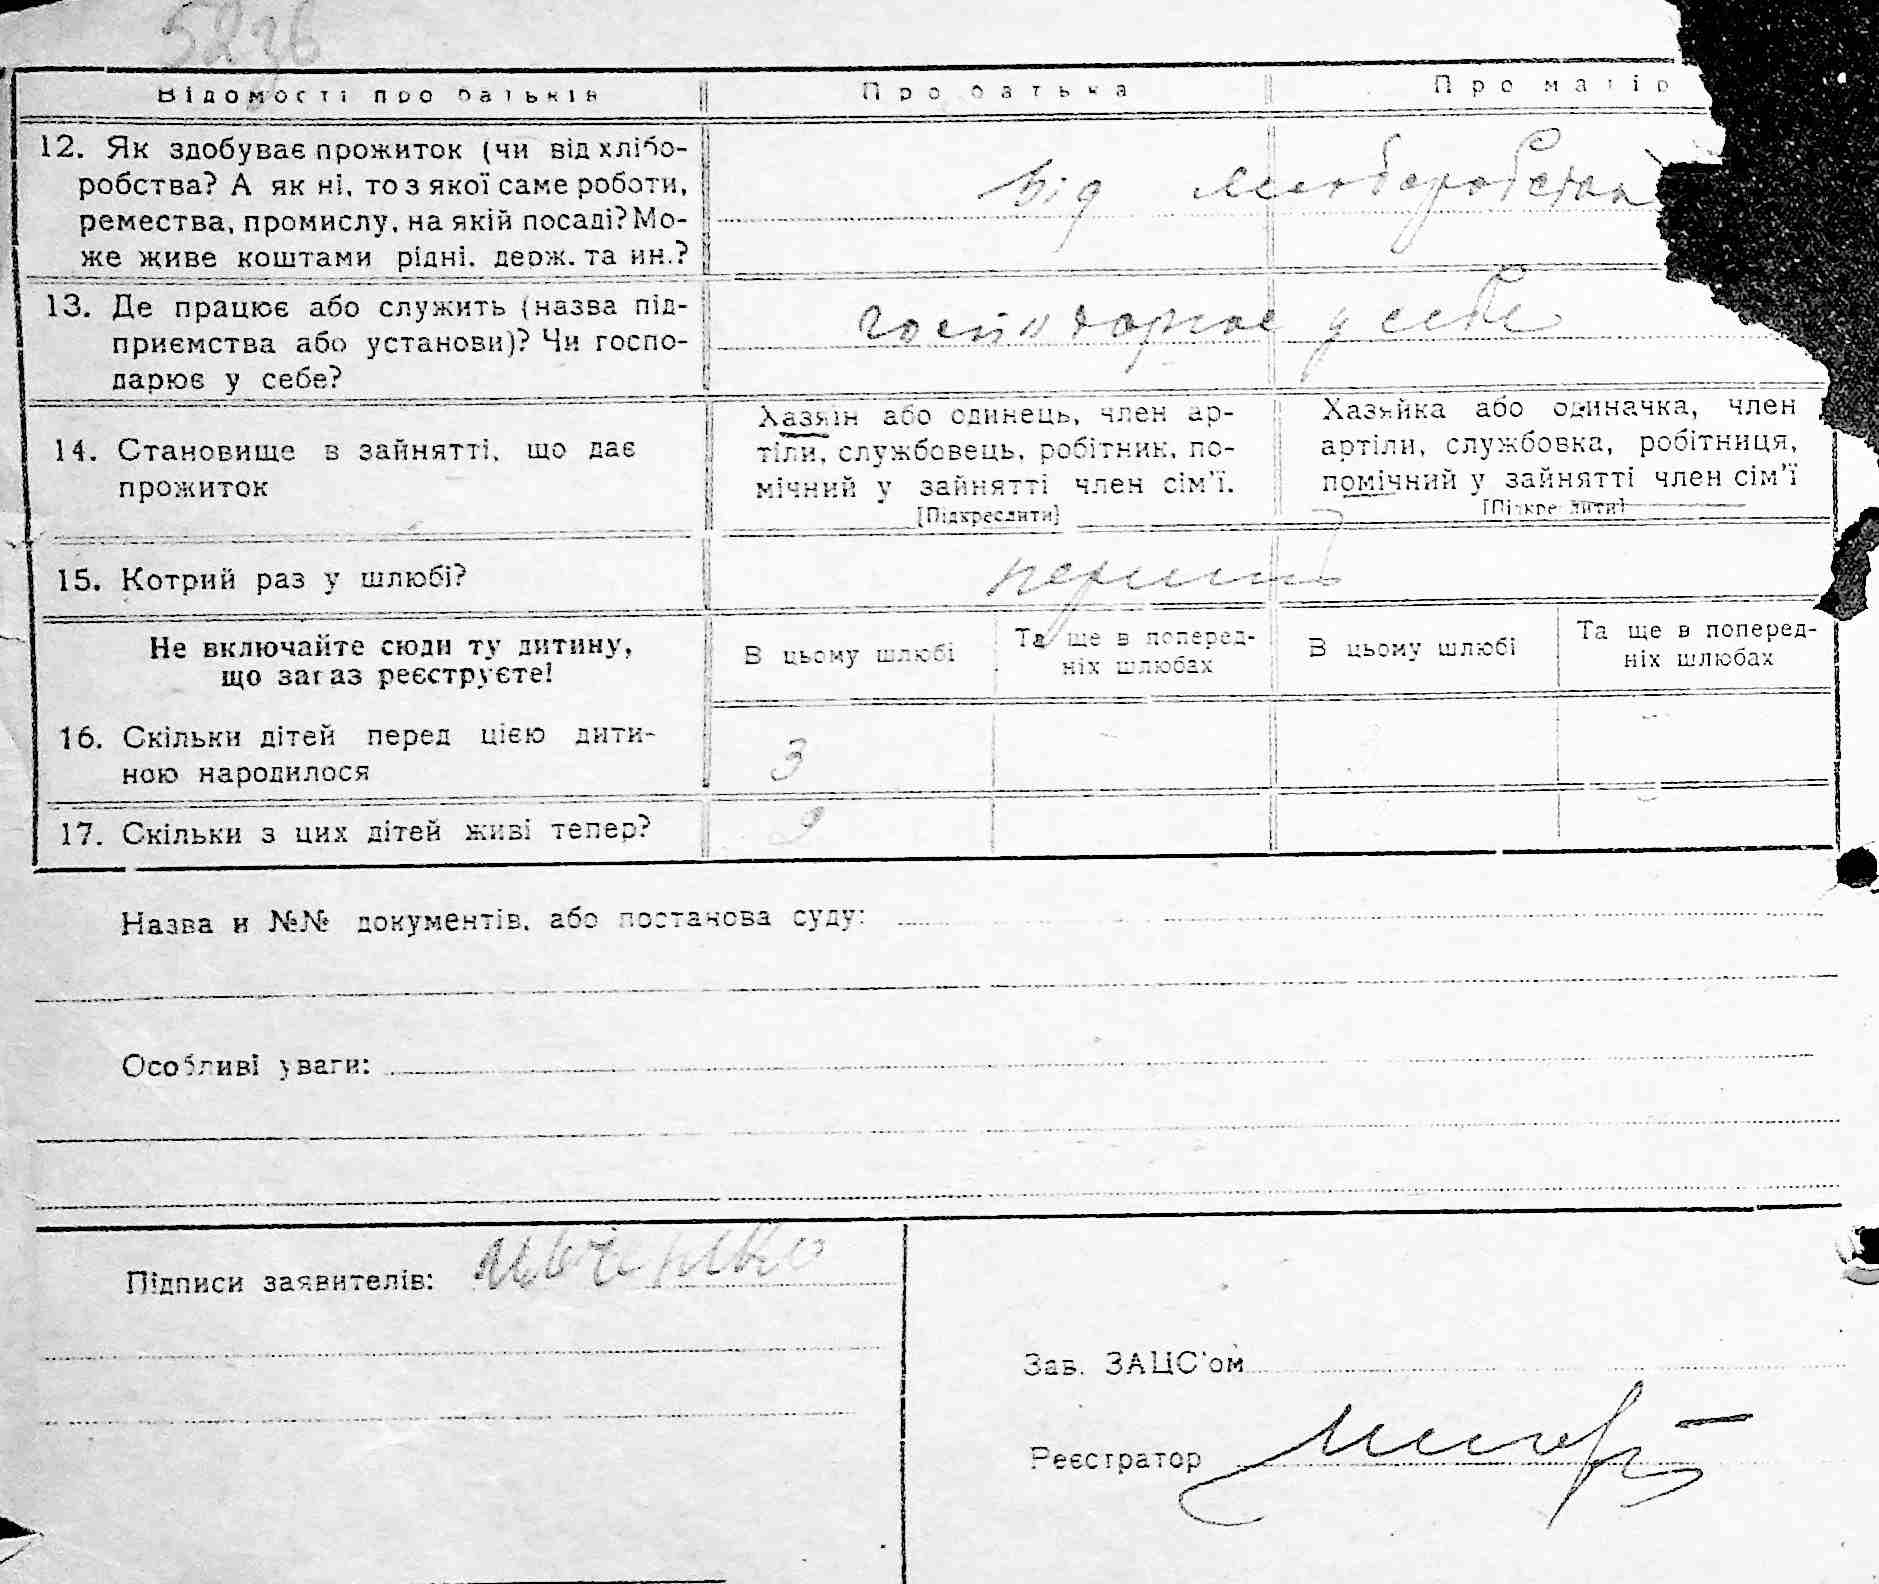 5236
Відомості про батьків Про батька Про матір
12. Як здобуває прожиток (чи від хлібо-
робства? А як ні, то з якої саме роботи,
ремества, промислу, на якій посаді? Мо-
же живе коштами рідні, держ. та ин.?
від хлоборобства
13. Де працює або служить (назва під-
приємства або установи)? Чи госпо-
дарює у себе?
господарює у себе
14. Становище в зайнятті, що дає
прожиток
Хазяїн або одинець, член ар-
тіли, службовець, робітник, по-
мічний у зайнятті член сім'ї.
[Підкреслити]
Хазяйка або одиначка, член
артіли, службовка, робітниця,
помічний у зайнятті член сім'ї
[Підкреслити]
15. Котрий раз у шлюбі?
перший
Не включайте сюди ту дитину,
що зараз реєструєте!
В цьому шлюбі
Та ще в поперед-
ніх шлюбах
В цьому шлюбі
Та ще в поперед-
ніх шлюбах
16. Скільки дітей перед цією дити-
ною народилося
3
17. Скільки з цих дітей живі тепер?
Назва и №№ документів, або постанова суду:
Особливі уваги:
Підписи заявителів:
Зав. ЗАЦС'ом
Реєстратор